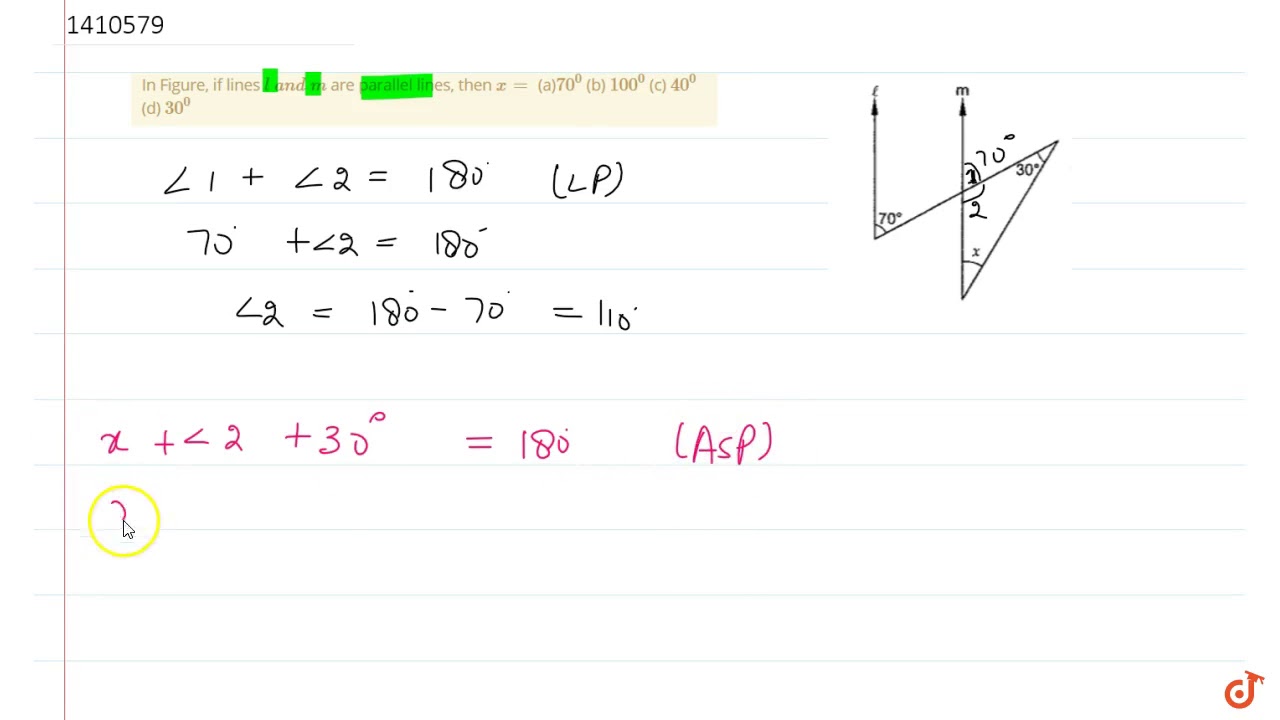 1410579
In Figure, if lines l and m are parallel lines, then x = (a)70⁰ (b) 100⁰ (c) 40⁰
(d) 30⁰
∠1 + ∠2 = 180° (LP)
70° + ∠2 = 180°
∠2 = 180° - 70° = 110°
x + ∠2 + 30° = 180° (ASP)
ℓ
m
70°
1
30°
2
70°
x